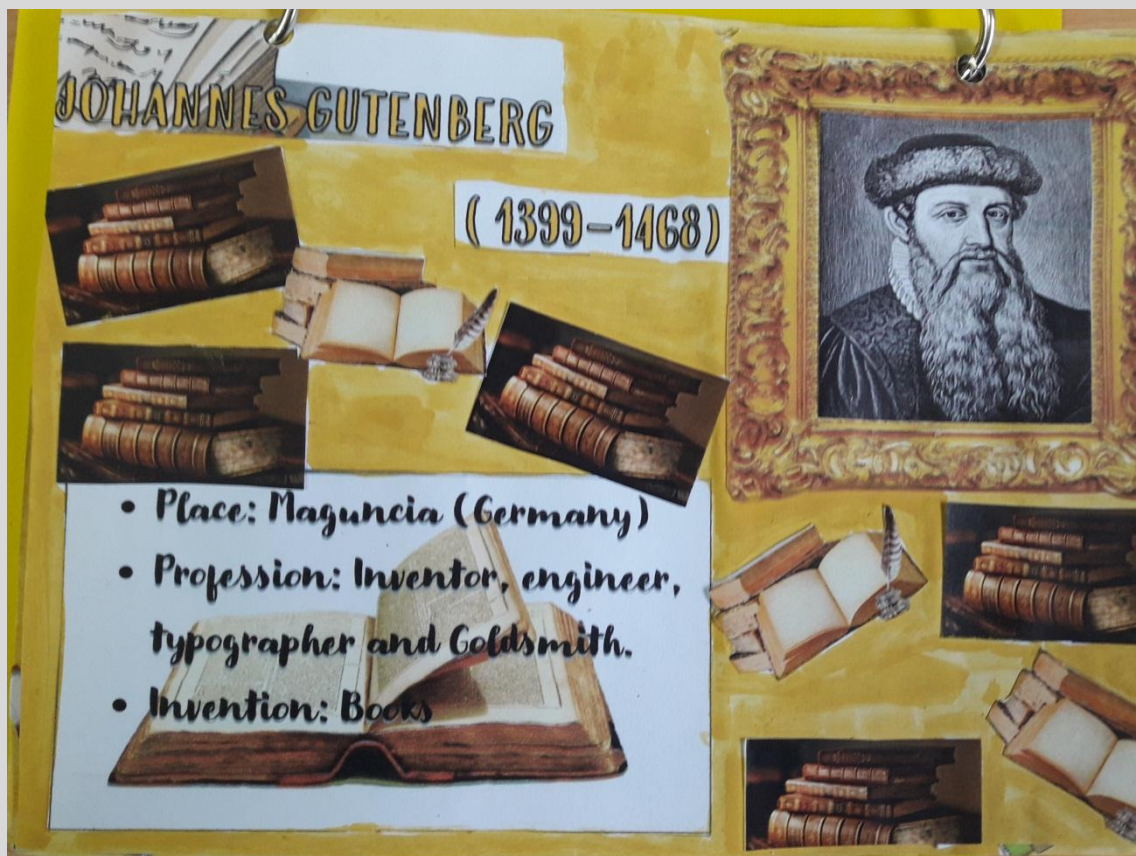 JOHANNES GUTENBERG
( 1399-1468)
• Place: Maguncia (Germany)
• Profession: Inventor, engineer,
typographer and Goldsmith.
• Invention: Books